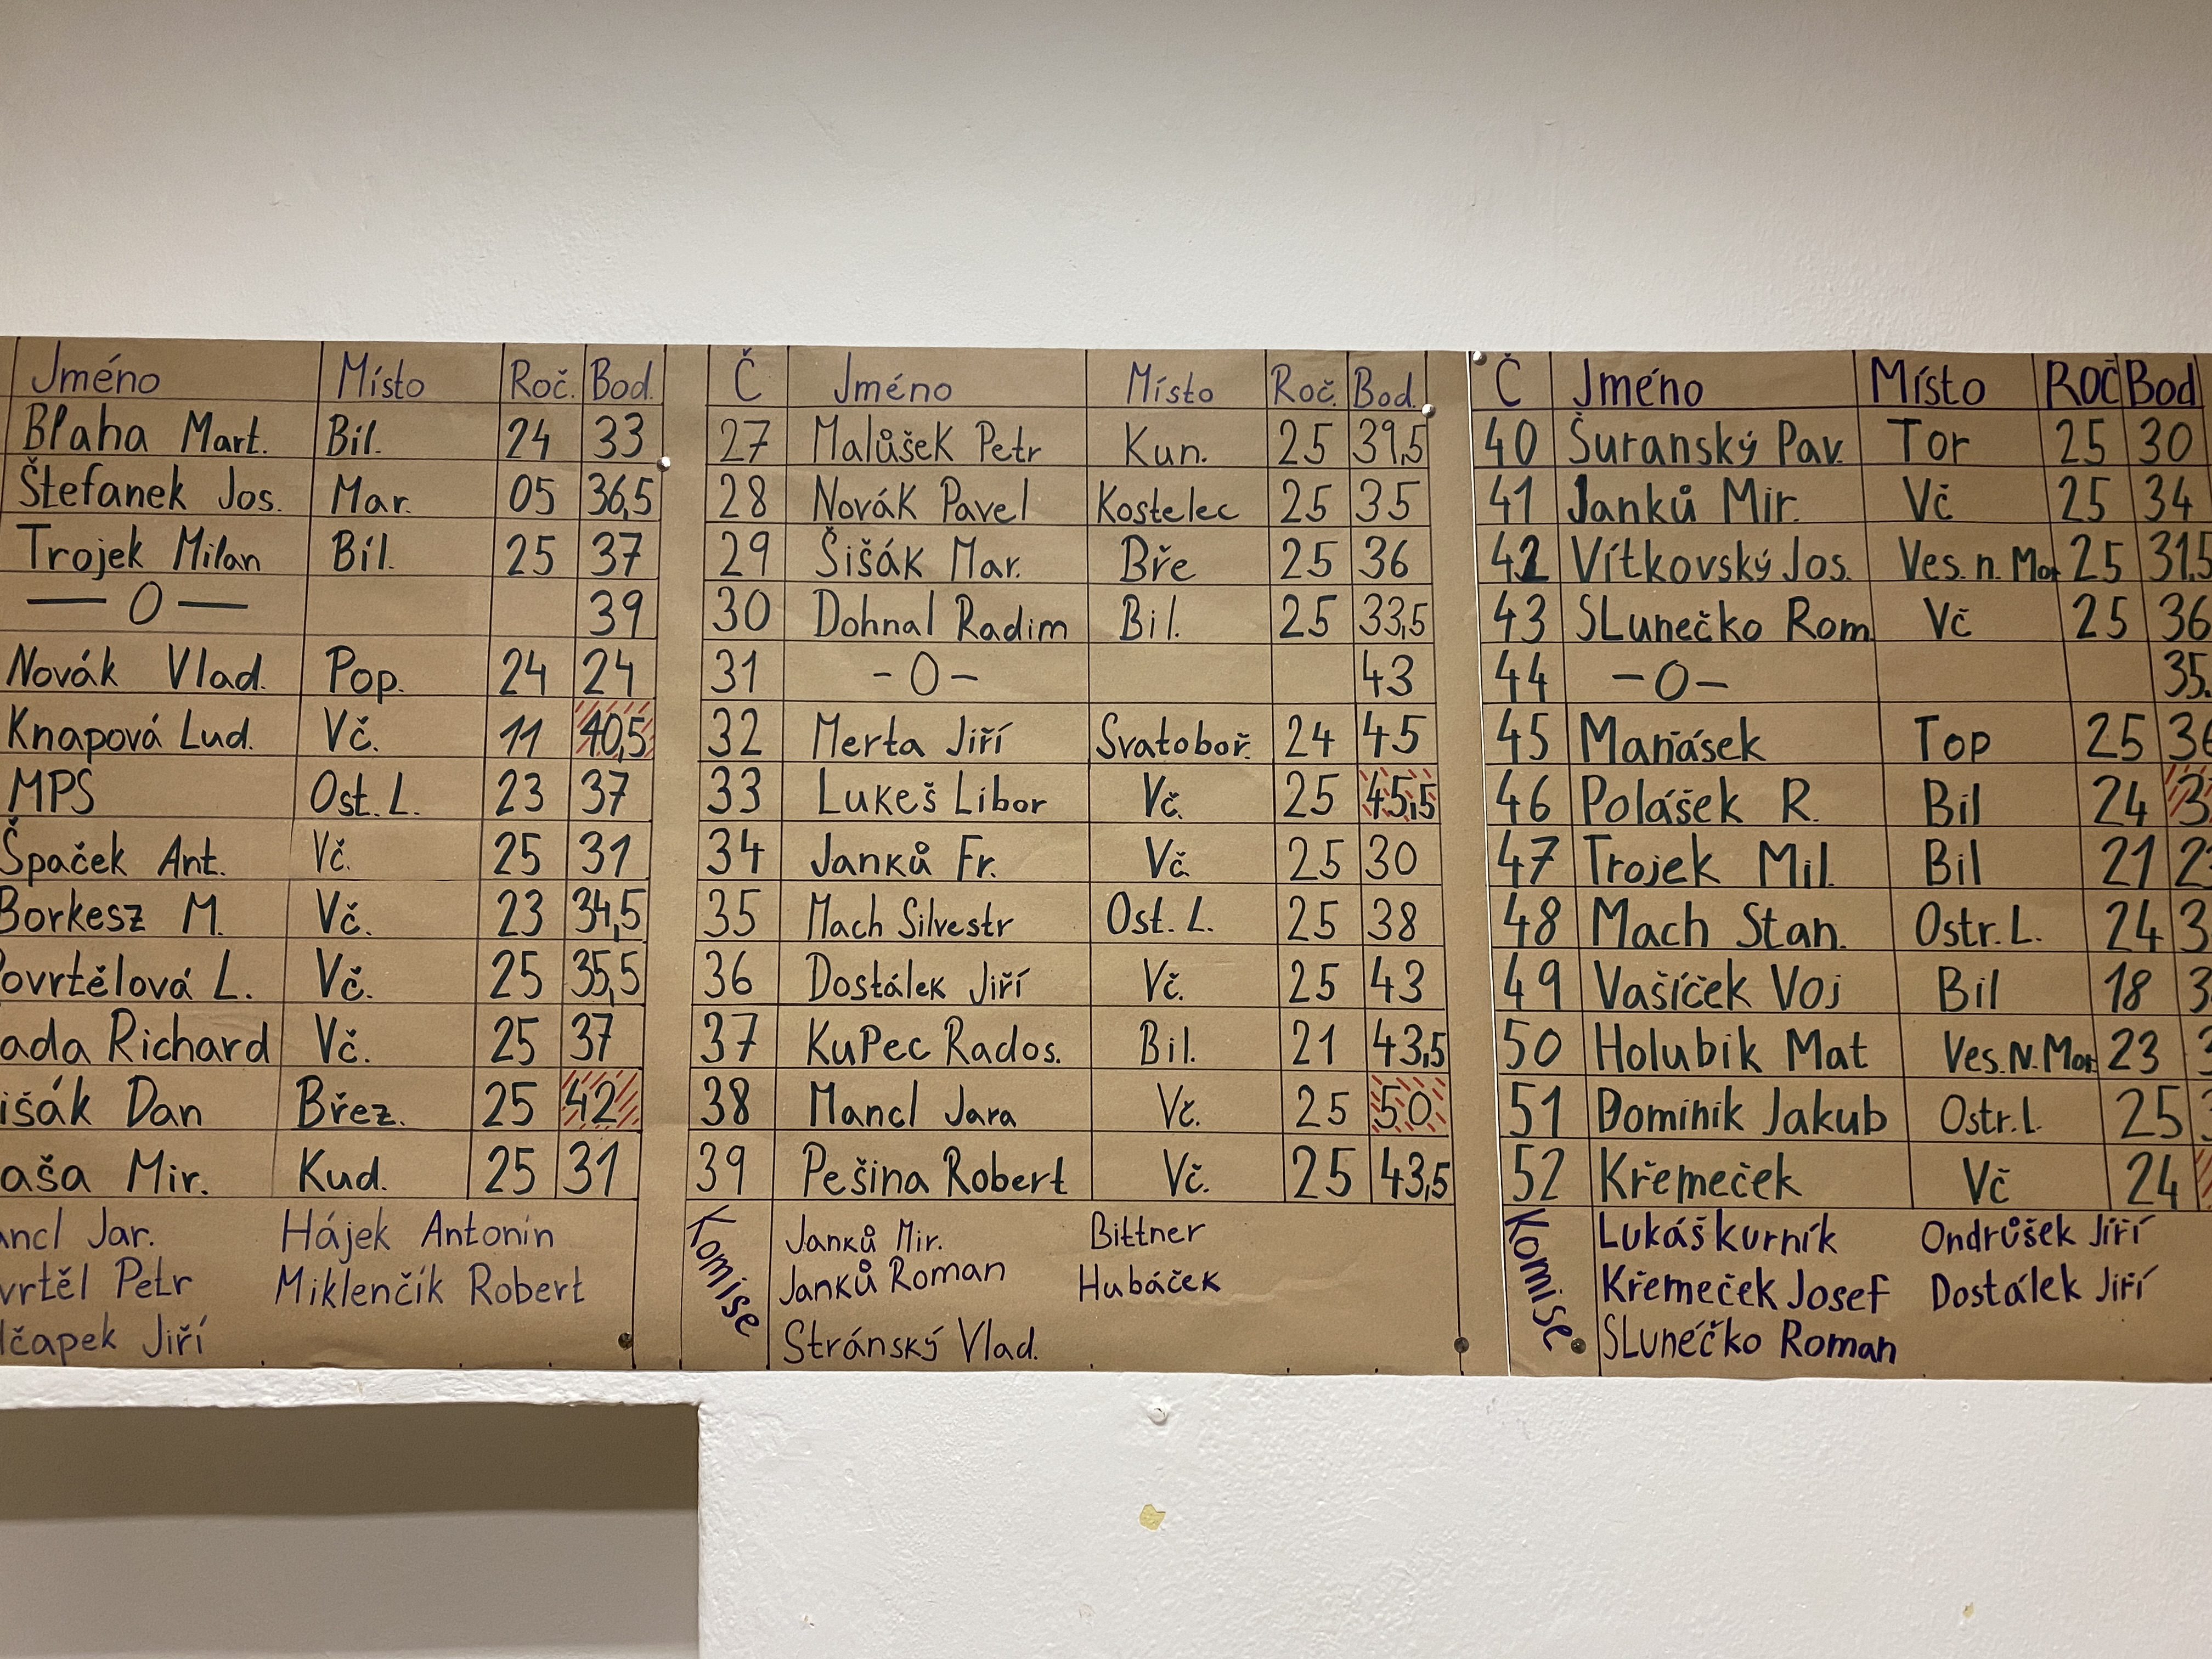 Jméno Místo Roč. Bod.
Blaha Mart. Bil. 24 33
Štefanek Jos. Mar. 05 36,5
Trojek Milan Bíl. 25 37
— 0 — 39
Novák Vlad. Pop. 24 24
Knapová Lud. Vč. 11 40,5
MPS Ost. L. 23 37
Špaček Ant. Vč. 25 31
Borkesz M. Vč. 23 34,5
ovrtělová L. Vč. 25 35,5
ada Richard Vč. 25 37
išák Dan Břez. 25 42
aša Mir. Kud. 25 31
ncl Jar. Hájek Antonín
vrtěl Petr Miklenčík Robert
lčapek Jiří
Č Jméno Místo Roč. Bod.
27 Malůšek Petr Kun. 25 39,5
28 Novák Pavel Kostelec 25 35
29 Šišák Mar. Bře 25 36
30 Dohnal Radim Bil. 25 33,5
31 – 0 – 43
32 Merta Jiří Svatoboř. 24 45
33 Lukeš Libor Vč. 25 45,5
34 Janků Fr. Vč. 25 30
35 Mach Silvestr Ost. L. 25 38
36 Dostálek Jiří Vč. 25 43
37 KuPec Rados. Bil. 21 43,5
38 Mancl Jara Vč. 25 50
39 Pešina Robert Vč. 25 43,5
Komise
Janků Mir. Bittner
Janků Roman Hubáček
Stránský Vlad.
Č Jméno Místo Roč Bod
40 Šuranský Pav. Tor 25 30
41 Janků Mir. Vč 25 34
42 Vítkovský Jos. Ves. n. Mor 25 31,5
43 SLunečko Rom. Vč 25 36
44 – 0 – 35,
45 Maňásek Top 25 36
46 Polášek R. Bil 24 3
47 Trojek Mil. Bil 21 2
48 Mach Stan. Ostr. L. 24 3
49 Vašíček Voj Bil 18 3
50 Holubik Mat Ves. N. Mor. 23 3
51 Dominik Jakub Ostr. L. 25 3
52 Křemeček Vč 24
Komise
Lukáš Kurník Ondrůšek Jiří
Křemeček Josef Dostálek Jiří
SLunéčko Roman